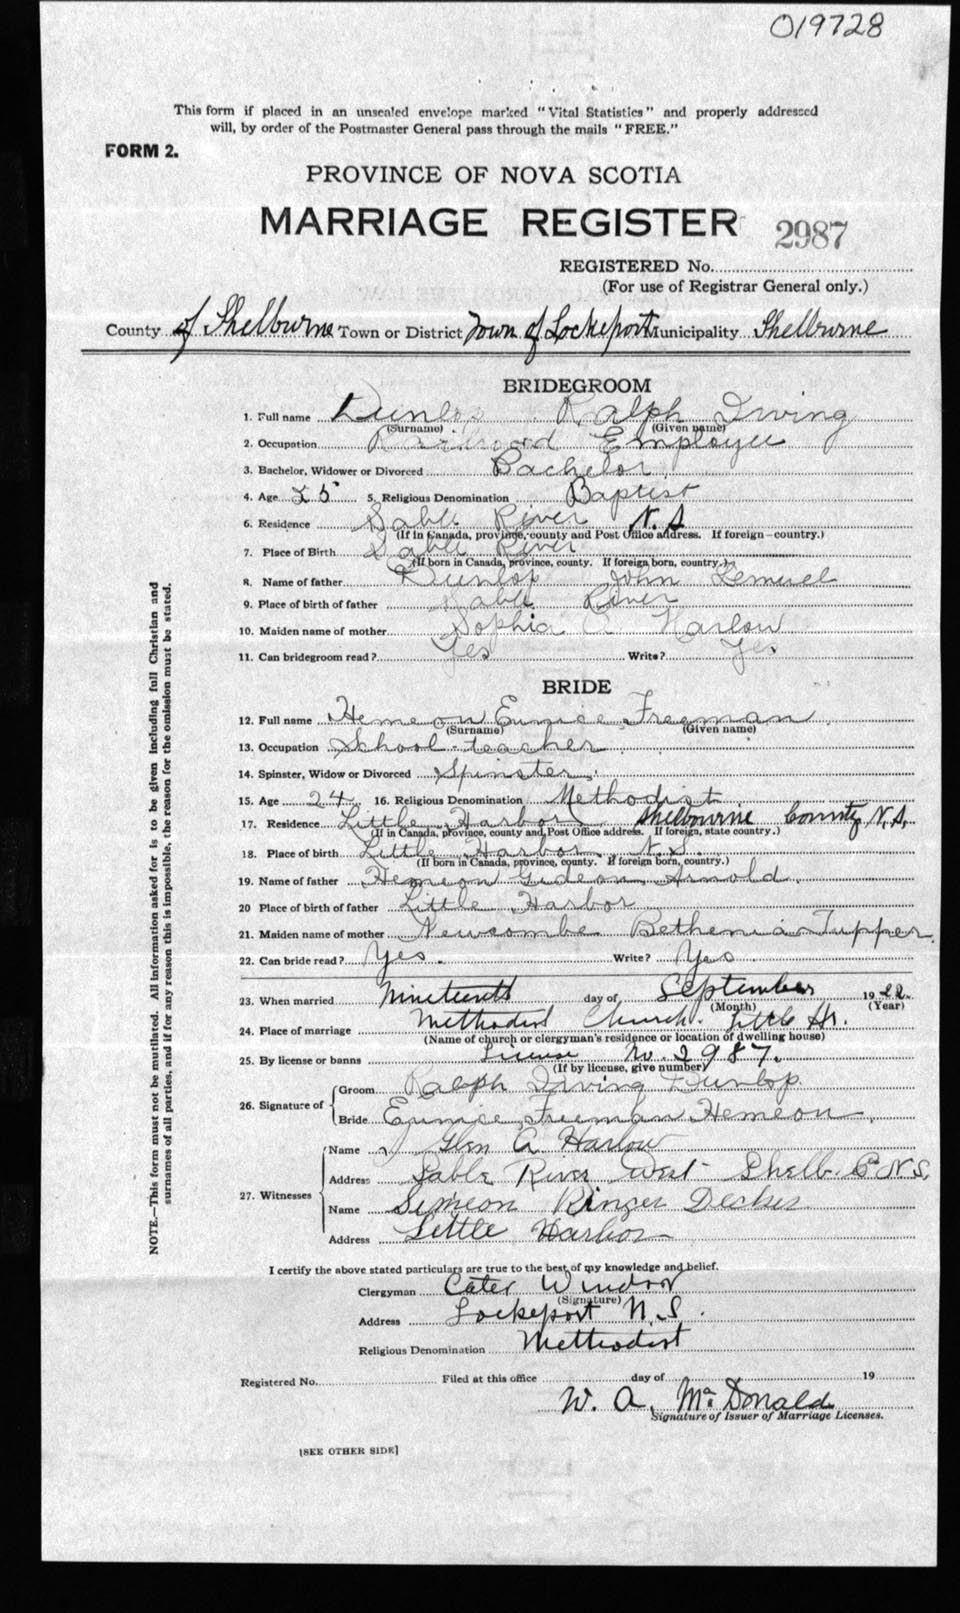 019728
This form if placed in an unsealed envelope marked "Vital Statistics" and properly addressed
will, by order of the Postmaster General pass through the mails "FREE."
FORM 2.
PROVINCE OF NOVA SCOTIA
MARRIAGE REGISTER 2987
REGISTERED No.
(For use of Registrar General only.)
County of Shelburne Town or District Town of Lockeport Municipality Shelburne
BRIDEGROOM
1. Full name Dunlop Ralph Irving
(Surname) (Given name)
2. Occupation Railroad Employee
3. Bachelor, Widower or Divorced Bachelor
4. Age 25 5. Religious Denomination Baptist
6. Residence Sable River N.S
(If in Canada, province, county and Post Office address. If foreign—country.)
7. Place of Birth Sable River
(If born in Canada, province, county. If foreign born, country.)
8. Name of father Dunlop John Lemuel
9. Place of birth of father Sable River
10. Maiden name of mother Sophia A Harlow
11. Can bridegroom read? Yes Write? Yes
BRIDE
12. Full name Hemeon Eunice Freeman
(Surname) (Given name)
13. Occupation School teacher
14. Spinster, Widow or Divorced Spinster
15. Age 24 16. Religious Denomination Methodist
17. Residence Little Harbor Shelbourne County N.S.
(If in Canada, province, county and Post Office address. If foreign, state country.)
18. Place of birth Little Harbor N.S.
(If born in Canada, province, county. If foreign born, country.)
19. Name of father Hemeon Gideon Arnold
20 Place of birth of father Little Harbor
21. Maiden name of mother Newcombe Bethenia Tupper
22. Can bride read? Yes. Write? Yes
23. When married Nineteenth day of September 1922
(Month) (Year)
24. Place of marriage Methodist Church. Little Hr.
(Name of church or clergyman's residence or location of dwelling house)
25. By license or banns License No. 2987.
(If by license, give number)
26. Signature of Groom Ralph Irving Dunlop.
Bride Eunice Freeman Hemeon
27. Witnesses Name Glen A Harlow
Address Sable River West Shelb. Co N.S.
Name Simeon Ringer Decker
Address Little Harbor
I certify the above stated particulars are true to the best of my knowledge and belief.
Clergyman Cater Windsor
(Signature)
Address Lockeport N.S.
Religious Denomination Methodist
Registered No. Filed at this office day of 19
W. A. McDonald
Signature of Issuer of Marriage Licenses.
[SEE OTHER SIDE]
NOTE.—This form must not be mutilated. All information asked for is to be given including full Christian and
surnames of all parties, and if for any reason this is impossible, the reason for the omission must be stated.